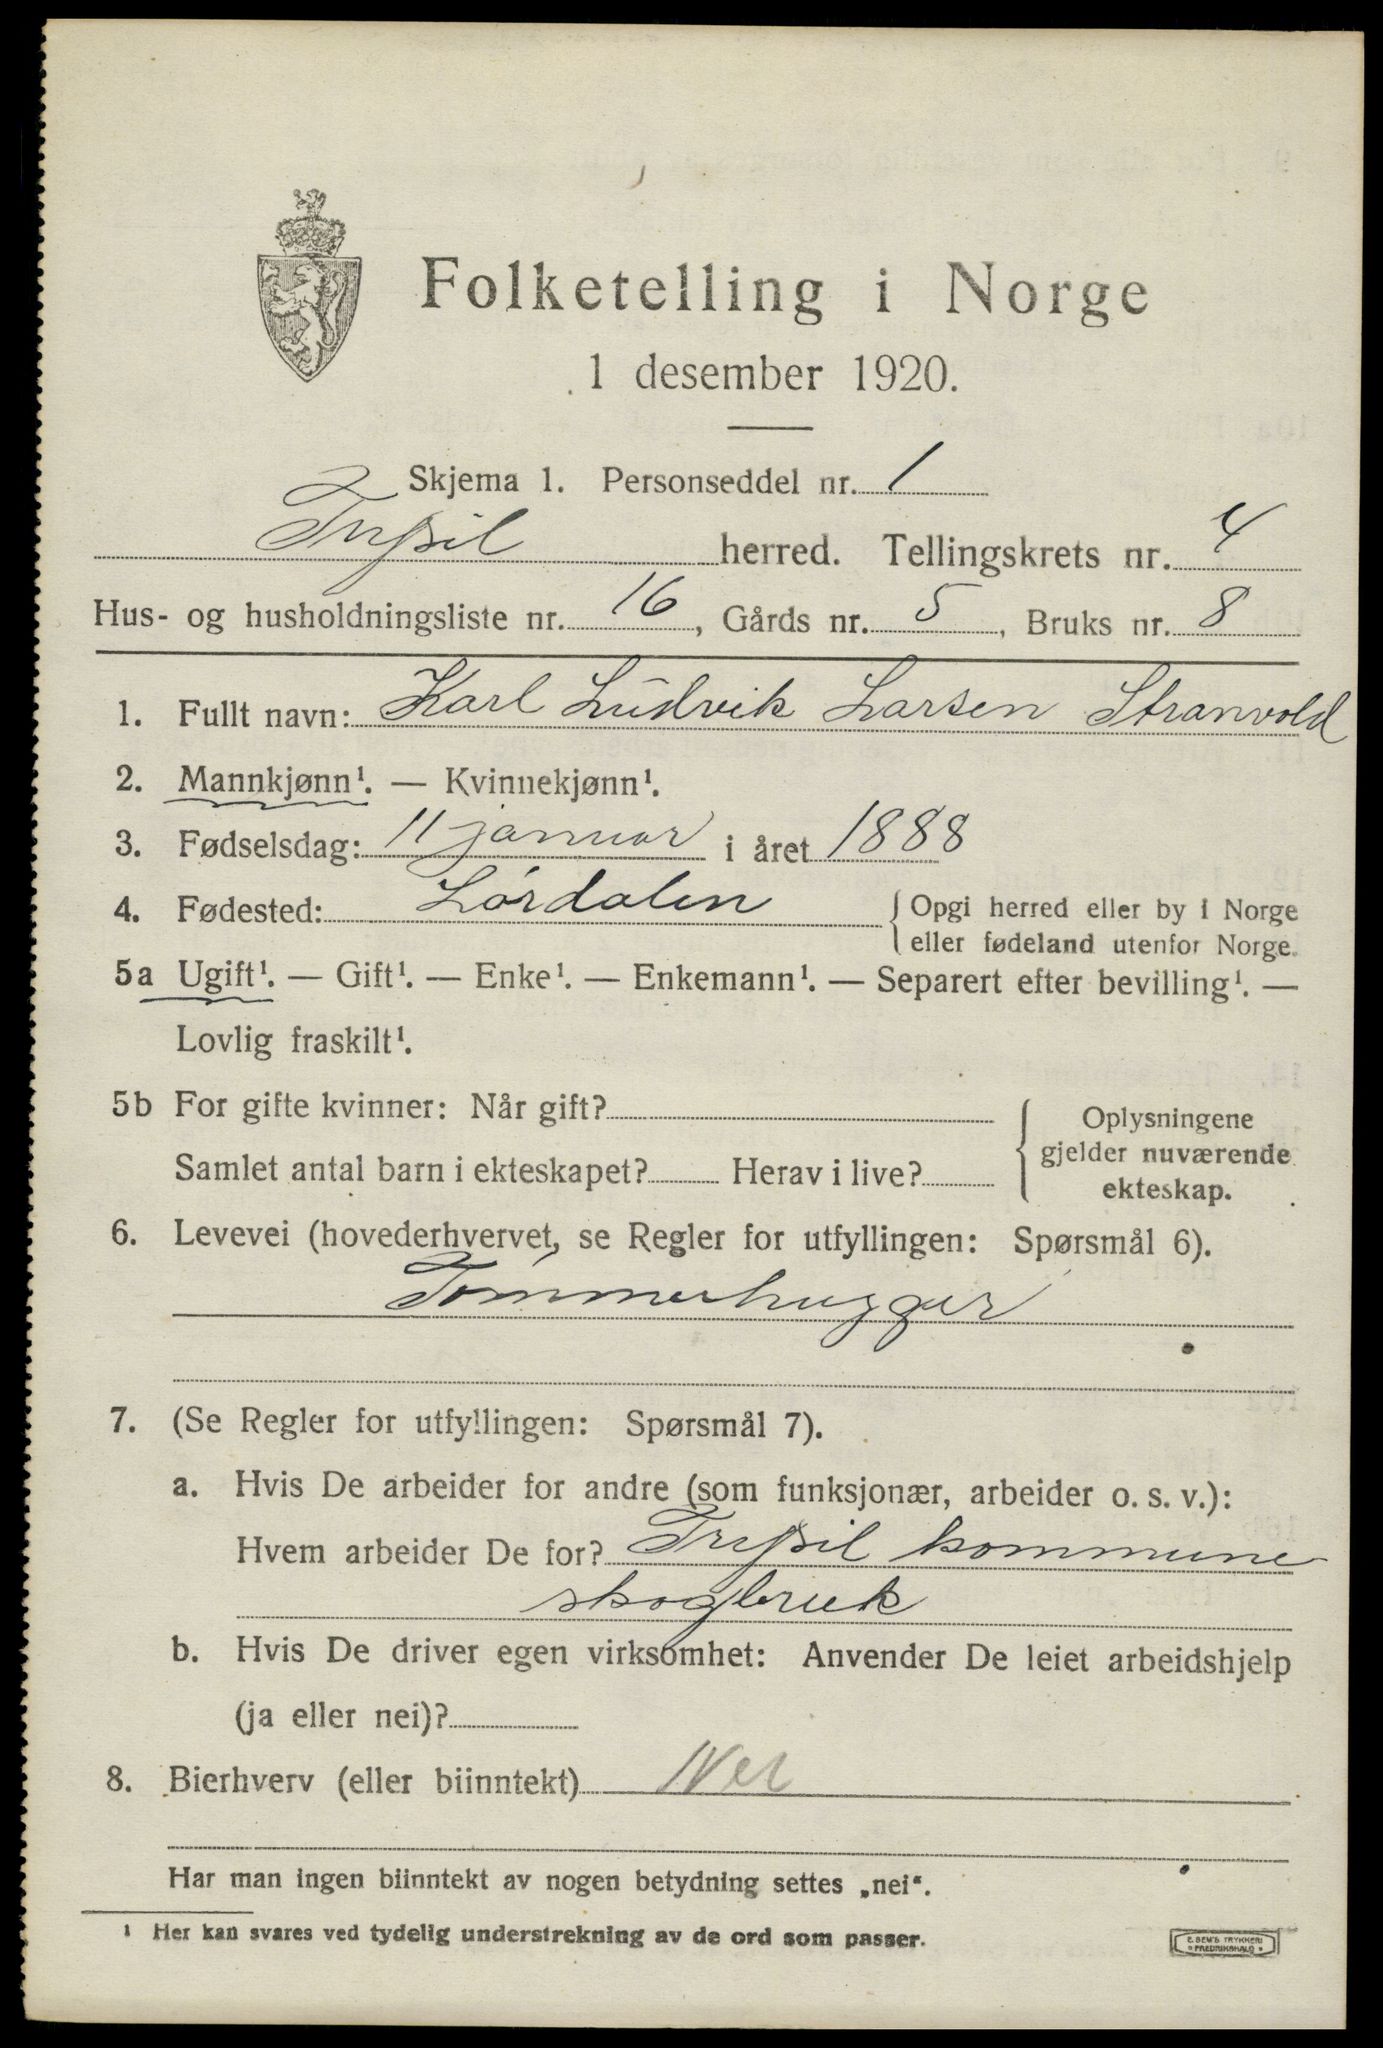 Folketelling i Norge
1 desember 1920.
Skjema 1. Personseddel nr. 1
Trysil herred. Tellingskrets nr. 4
Hus- og husholdningsliste nr. 16, Gårds nr. 5, Bruks nr. 8
1. Fullt navn: Karl Ludvik Larsen Stranvold
2. Mannkjønn¹. — Kvinnekjønn¹.
3. Fødselsdag: 11 januar i året 1888
4. Fødested: Lørdalen { Opgi herred eller by i Norge
eller fødeland utenfor Norge.
5a Ugift¹. — Gift¹. — Enke¹. — Enkemann¹. — Separert efter bevilling¹. —
Lovlig fraskilt¹.
5b For gifte kvinner: Når gift?
Samlet antal barn i ekteskapet? Herav i live?
{ Oplysningene
gjelder nuværende
ekteskap.
6. Levevei (hovederhvervet, se Regler for utfyllingen: Spørsmål 6).
Tømmerhugger
7. (Se Regler for utfyllingen: Spørsmål 7).
a. Hvis De arbeider for andre (som funksjonær, arbeider o. s. v.):
Hvem arbeider De for? Trysil kommune
skogbruk
b. Hvis De driver egen virksomhet: Anvender De leiet arbeidshjelp
(ja eller nei)?
8. Bierhverv (eller biinntekt) Nei
Har man ingen biinntekt av nogen betydning settes „nei“.
¹ Her kan svares ved tydelig understrekning av de ord som passer.
E. SEM'S TRYKKERI
FREDRIKSHALD